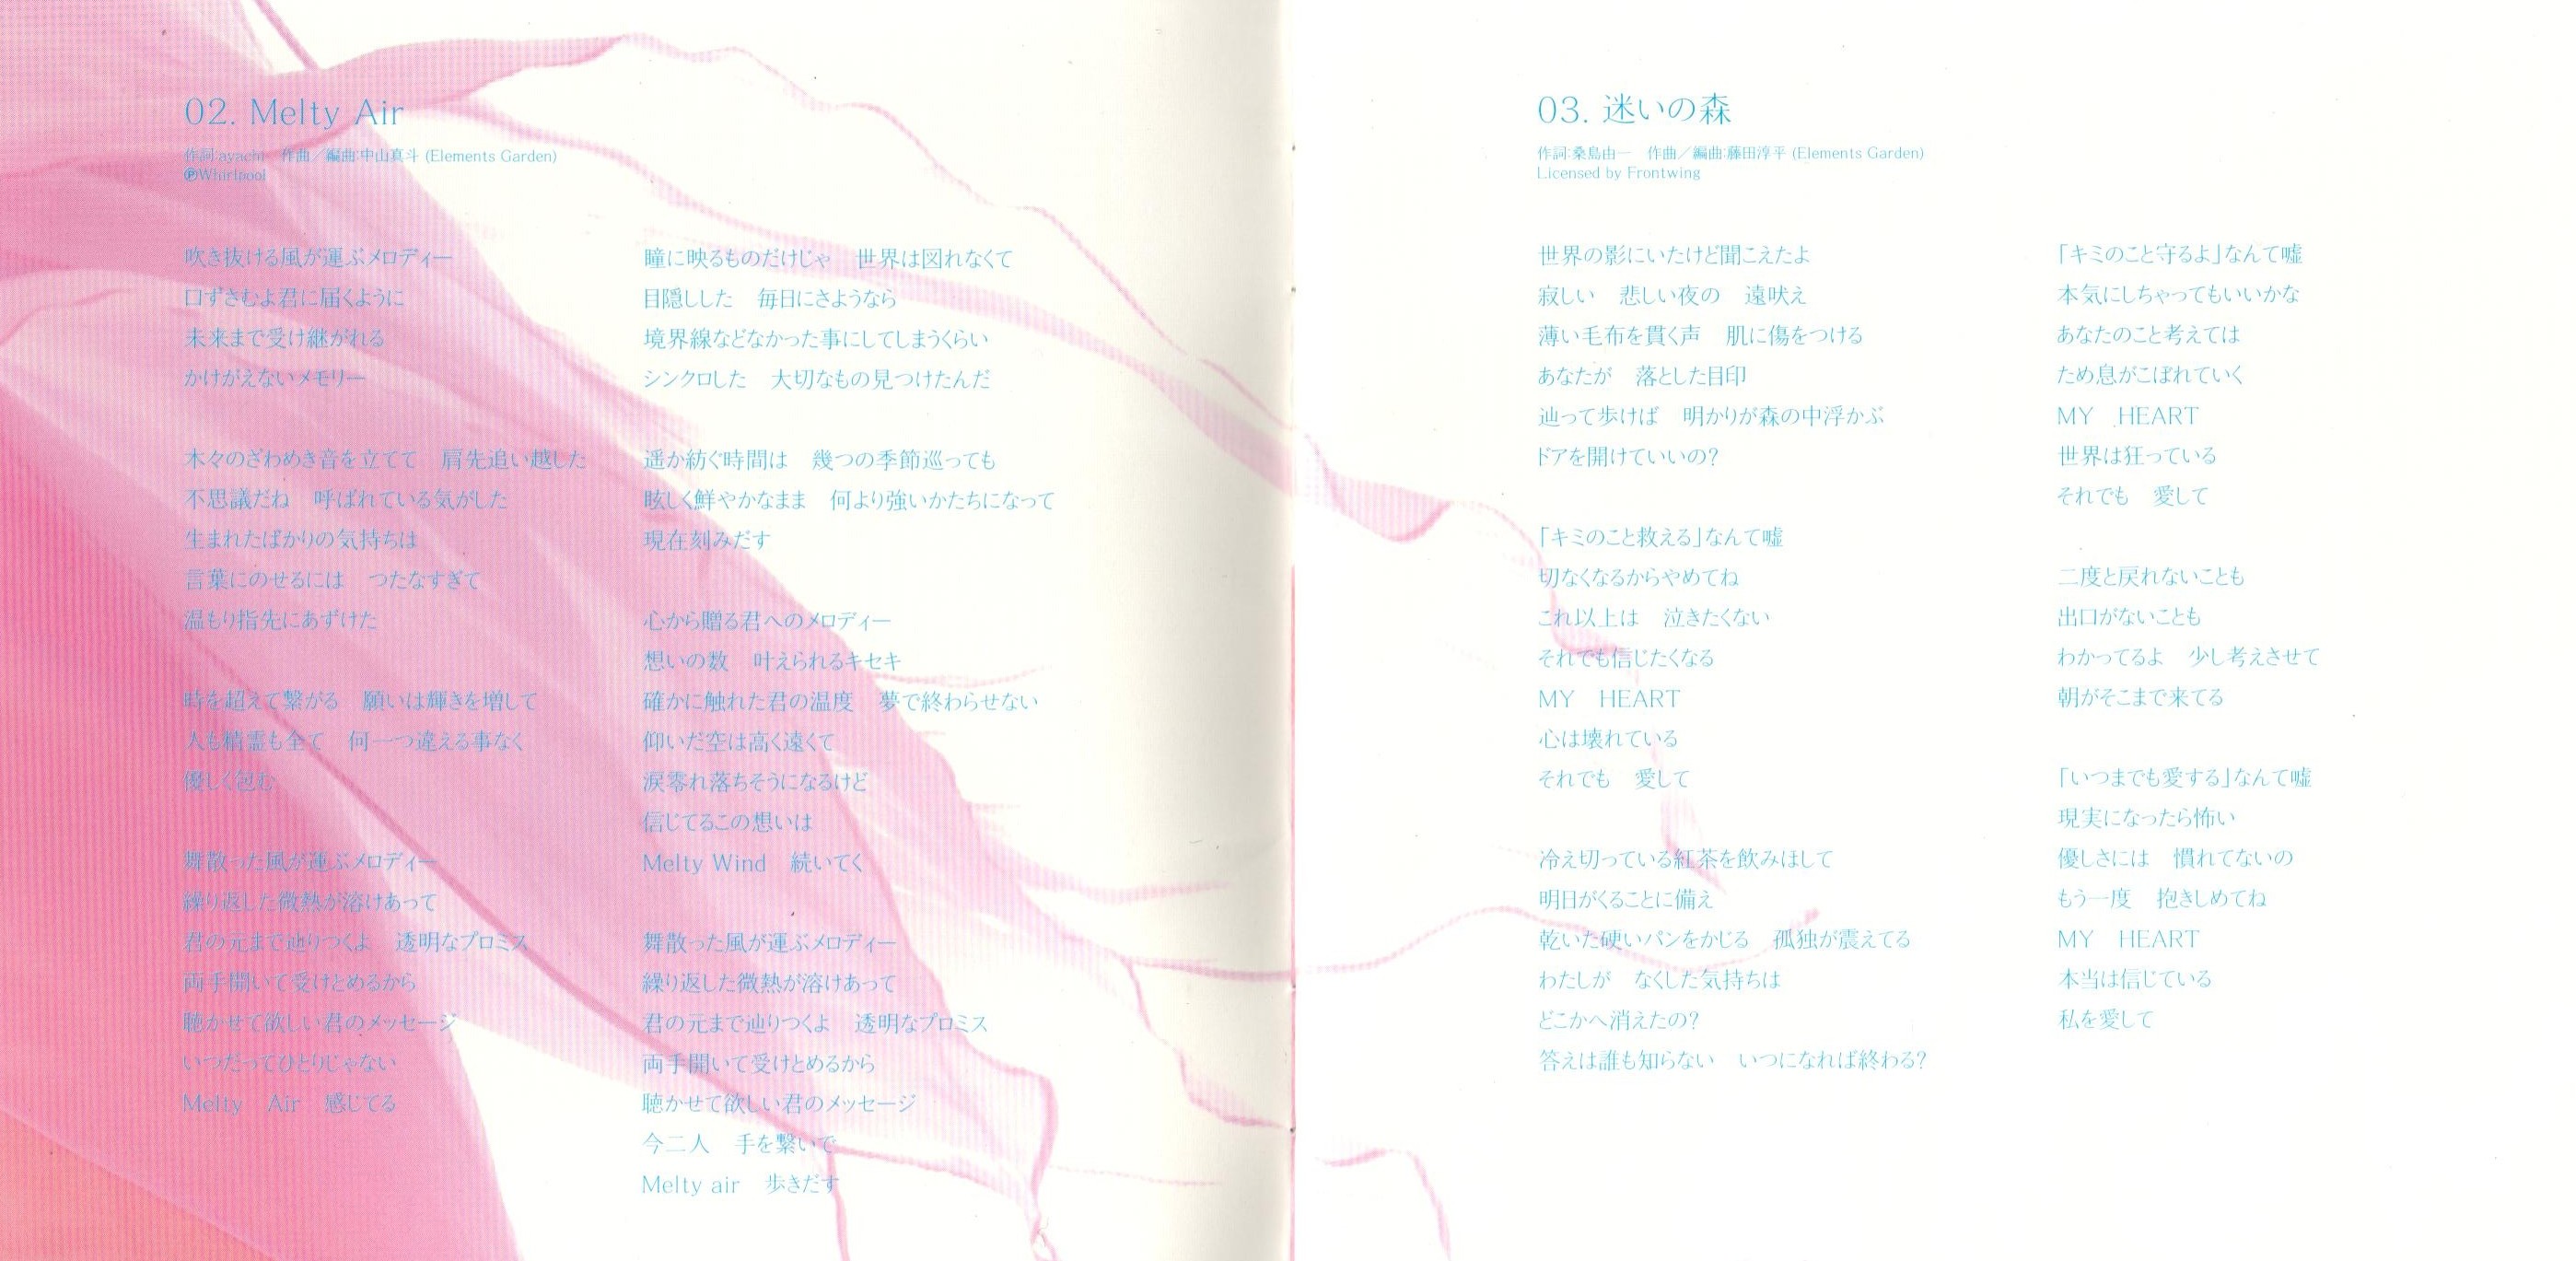 02. Melty Air
作詞:ayachi　作曲／編曲:中山真斗 (Elements Garden)
ⓅWhirlpool
吹き抜ける風が運ぶメロディー
口ずさむよ君に届くように
未来まで受け継がれる
かけがえないメモリー
木々のざわめき音を立てて　肩先追い越した
不思議だね　呼ばれている気がした
生まれたばかりの気持ちは
言葉にのせるには　つたなすぎて
温もり指先にあずけた
時を超えて繋がる　願いは輝きを増して
人も精霊も全て　何一つ違える事なく
優しく包む
舞散った風が運ぶメロディー
繰り返した微熱が溶けあって
君の元まで辿りつくよ　透明なプロミス
両手開いて受けとめるから
聴かせて欲しい君のメッセージ
いつだってひとりじゃない
Melty　Air　感じてる
瞳に映るものだけじゃ　世界は図れなくて
目隠しした　毎日にさようなら
境界線などなかった事にしてしまうくらい
シンクロした　大切なもの見つけたんだ
遥か紡ぐ時間は　幾つの季節巡っても
眩しく鮮やかなまま　何より強いかたちになって
現在刻みだす
心から贈る君へのメロディー
想いの数　叶えられるキセキ
確かに触れた君の温度　夢で終わらせない
仰いだ空は高く遠くて
涙零れ落ちそうになるけど
信じてるこの想いは
Melty Wind　続いてく
舞散った風が運ぶメロディー
繰り返した微熱が溶けあって
君の元まで辿りつくよ　透明なプロミス
両手開いて受けとめるから
聴かせて欲しい君のメッセージ
今二人　手を繋いで
Melty air　歩きだす
03. 迷いの森
作詞:桑島由一　作曲／編曲:藤田淳平 (Elements Garden)
Licensed by Frontwing
世界の影にいたけど聞こえたよ
寂しい　悲しい夜の　遠吠え
薄い毛布を貫く声　肌に傷をつける
あなたが　落とした目印
辿って歩けば　明かりが森の中浮かぶ
ドアを開けていいの?
「キミのこと救える」なんて嘘
切なくなるからやめてね
これ以上は　泣きたくない
それでも信じたくなる
MY　HEART
心は壊れている
それでも　愛して
冷え切っている紅茶を飲みほして
明日がくることに備え
乾いた硬いパンをかじる　孤独が震えてる
わたしが　なくした気持ちは
どこかへ消えたの?
答えは誰も知らない　いつになれば終わる?
「キミのこと守るよ」なんて嘘
本気にしちゃってもいいかな
あなたのこと考えては
ため息がこぼれていく
MY　HEART
世界は狂っている
それでも　愛して
二度と戻れないことも
出口がないことも
わかってるよ　少し考えさせて
朝がそこまで来てる
「いつまでも愛する」なんて嘘
現実になったら怖い
優しさには　慣れてないの
もう一度　抱きしめてね
MY　HEART
本当は信じている
私を愛して